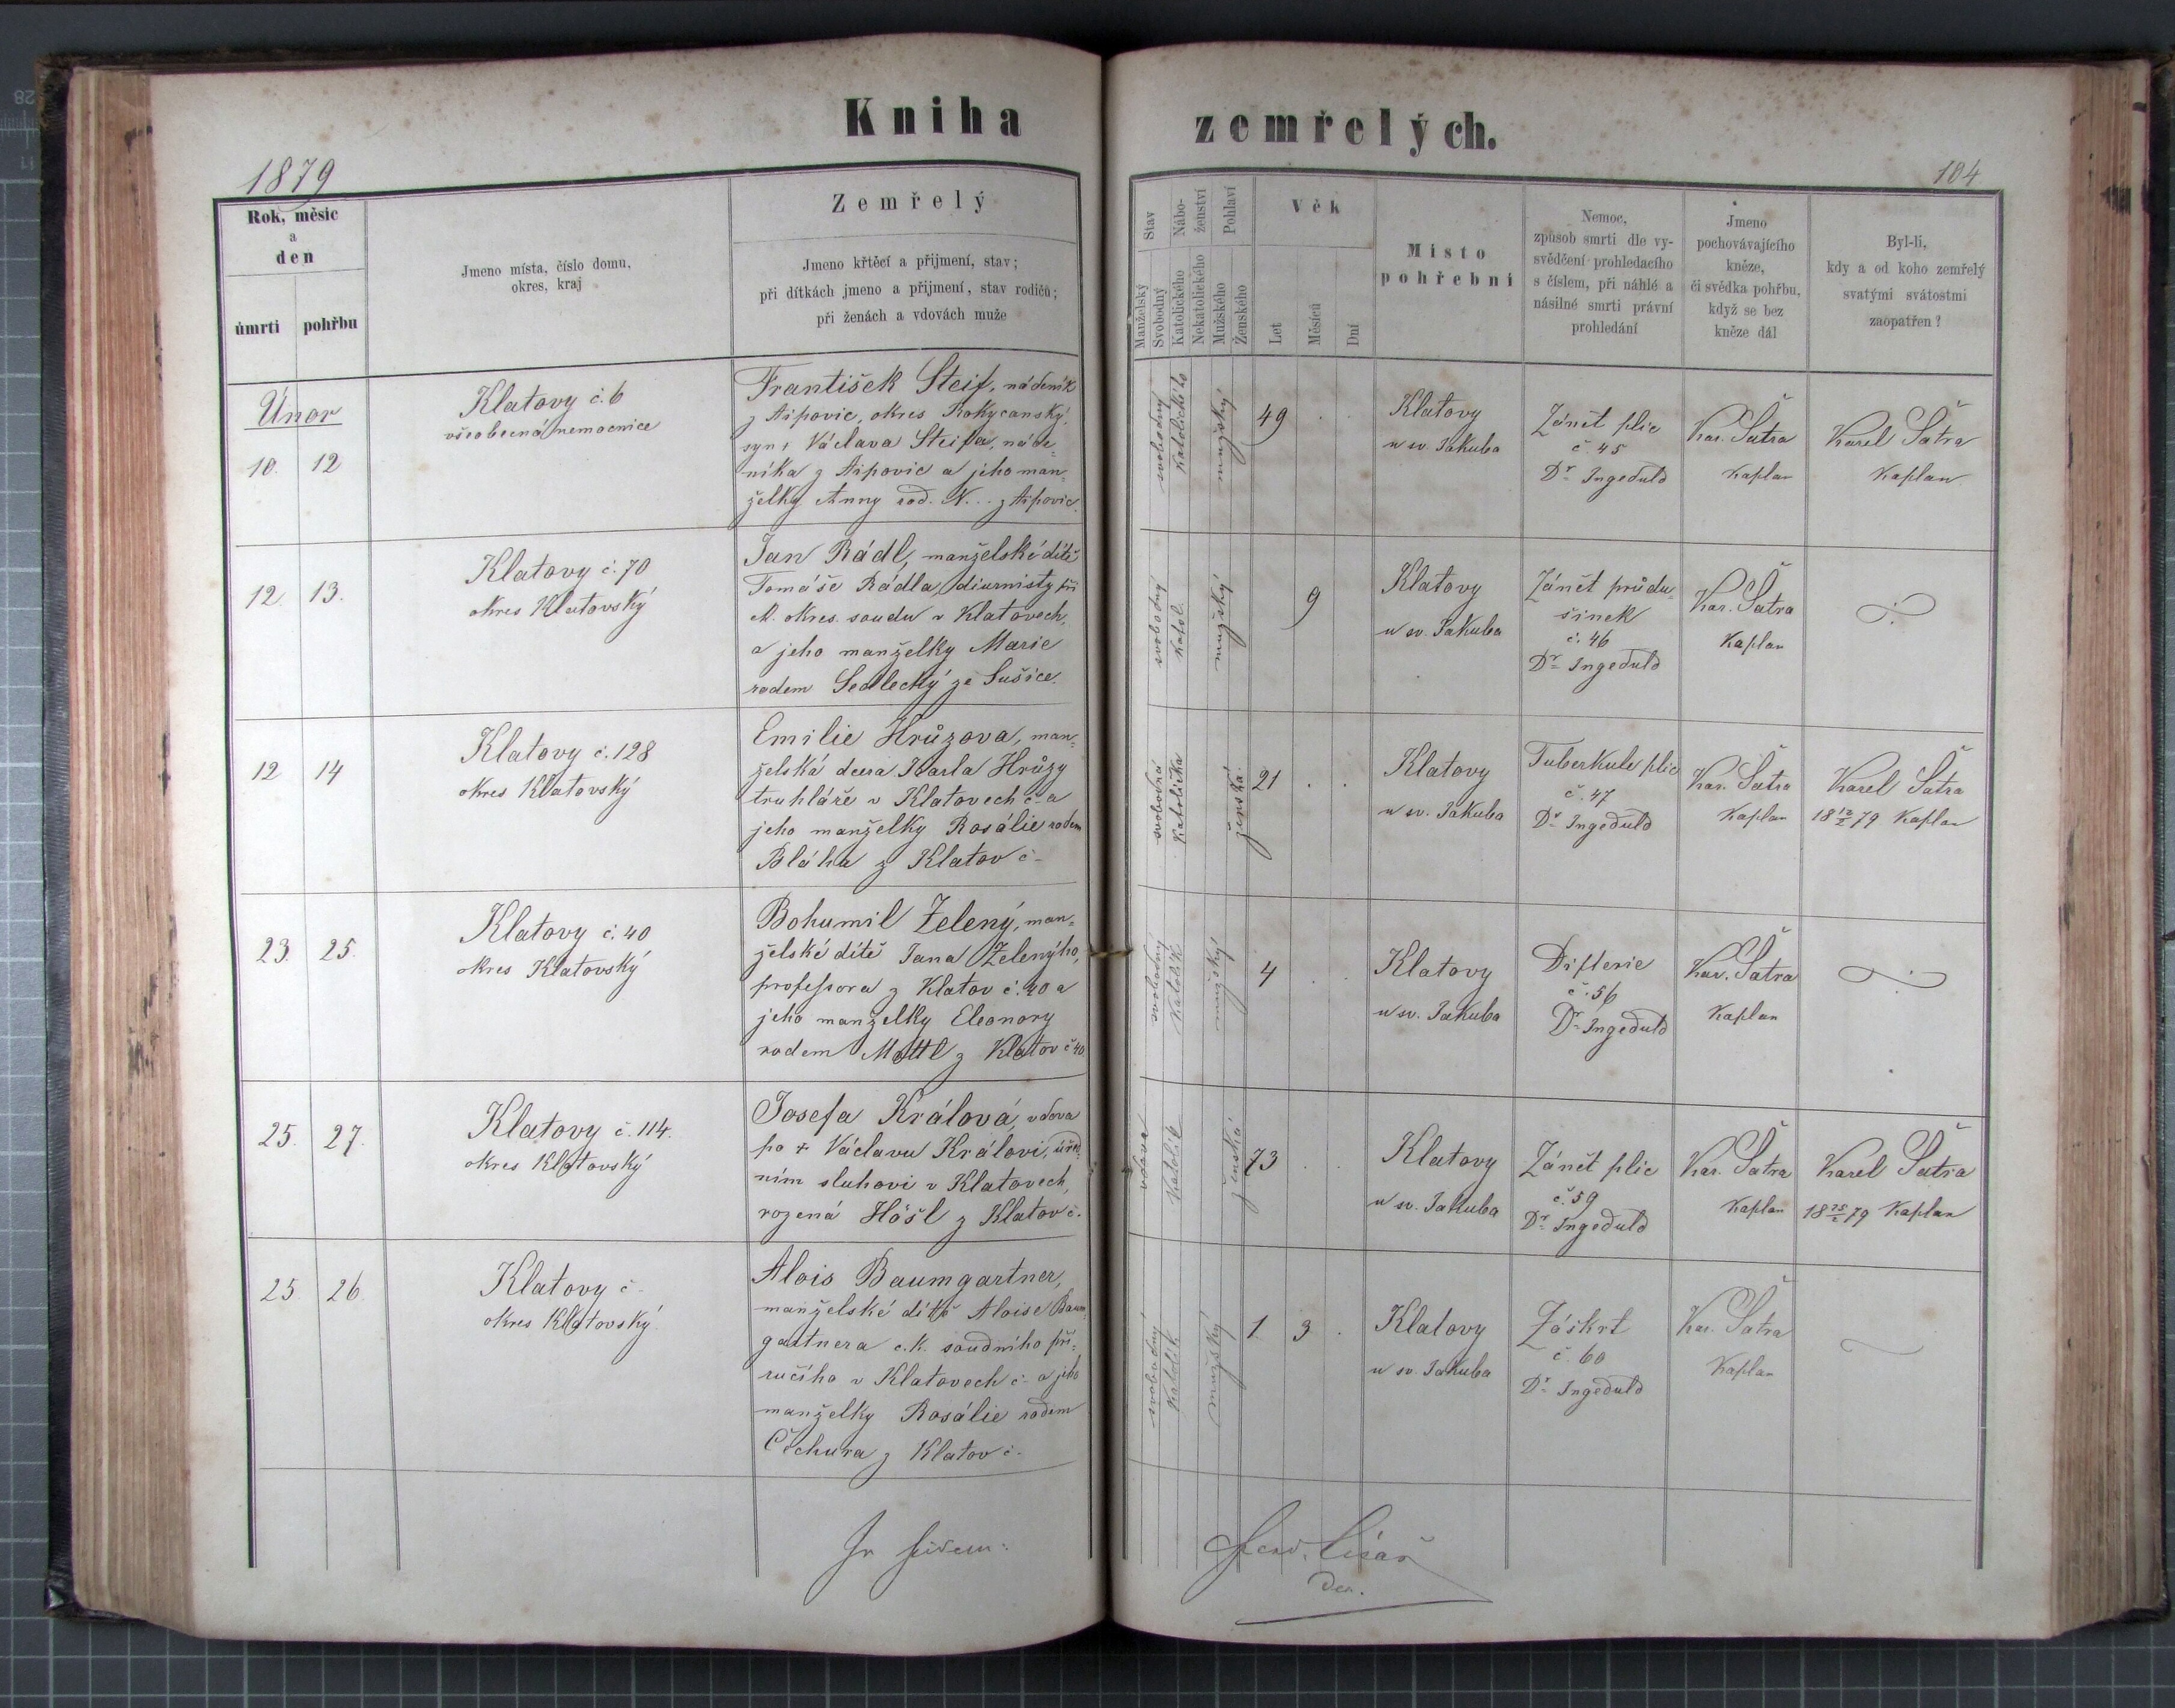 Kniha zemřelých.
1879
104
Rok, měsíc
a
den
úmrtí
pohřbu
Jmeno místa, číslo domu,
okres, kraj
Zemřelý
Jmeno křtěcí a přijmení, stav;
při dítkách jmeno a přijmení, stav rodičů;
při ženách a vdovách muže
Stav
Manželský
Svobodný
Nábo-
ženství
Katolického
Nekatolického
Pohlaví
Mužského
Ženského
Věk
Let
Měsíců
Dní
Místo
pohřební
Nemoc,
způsob smrti dle vy-
svědčení prohledacího
s číslem, při náhlé a
násilné smrti právní
prohledání
Jmeno
pochovávajícího
kněze,
či svědka pohřbu,
když se bez
kněze dál
Byl-li,
kdy a od koho zemřelý
svatými svátostmi
zaopatřen?
Únor
10. 12
Klatovy č. 6
všeobecná nemocnice
František Steif, nádeník
z Ejpovic, okres Rokycanský,
syn Václava Steifa, náde-
níka z Ejpovic a jeho man-
želky Anny rod. N... z Ejpovic.
svobodný
katolického
mužský
49 . .
Klatovy
u sv. Jakuba
Zánět plic
č. 45
Dr Ingeduld
Kar. Šatra
kaplan
Karel Šatra
kaplan.
12. 13.
Klatovy č. 70
okres Klatovský
Jan Rádl, manželské dítě
Tomáše Rádla, diurnisty při
M. okres. soudu v Klatovech,
a jeho manželky Marie
rodem Sedlecký ze Sušice.
svobodný
katol.
mužský
9
Klatovy
u sv. Jakuba
Zánět průdu-
šinek
č. 46
Dr Ingeduld
Kar. Šatra
kaplan
12 14
Klatovy č. 128
okres Klatovský
Emilie Hrůzova, man-
želská dcera Karla Hrůzy
truhláře v Klatovech č - a
jeho manželky Rosálie rodem
Bláha z Klatov č -
svobodná
katolička
ženská.
21 . .
Klatovy
u sv. Jakuba
Tuberkule plic
č. 47
Dr Ingeduld
Kar. Šatra
kaplan
Karel Šatra
18 12/2 79 kaplan
23. 25.
Klatovy č. 40
okres Klatovský
Bohumil Zelený, man-
želské dítě Jana Zelenýho,
professora z Klatov č. 40 a
jeho manželky Eleonory
rodem Mottl z Klatov č 40
svobodný
katolík
mužský
4 . .
Klatovy
u sv. Jakuba
Difterie
č. 56
Dr Ingeduld
Kar. Šatra
kaplan
25. 27.
Klatovy č. 114.
okres Klatovský
Josefa Králová, vdova
po + Václavu Královi, úřed-
ním sluhovi v Klatovech,
rozená Hösl z Klatov č.
vdova
katolík
ženská
73 . .
Klatovy
u sv. Jakuba
Zánět plic
č. 59
Dr Ingeduld
Kar. Šatra
kaplan
Karel Šatra
18 25/2 79 kaplan
25 26.
Klatovy č -
okres Klatovský.
Alois Baumgartner,
manželské dítě Aloise Baum-
gartnera c. k. soudního pří-
ručího v Klatovech č - a jeho
manželky Rosálie rodem
Čechura z Klatov č -
svobodný
katolík
mužský
1 3 .
Klatovy
u sv. Jakuba
Záškrt
č. 60
Dr Ingeduld
Kar. Šatra
kaplan